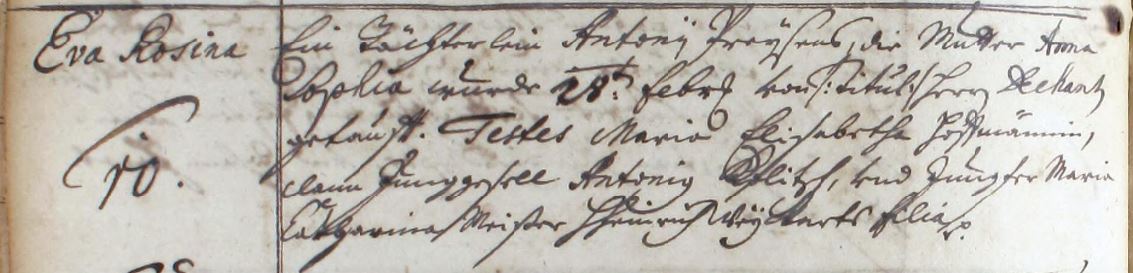 Eva Rosina
10.
Ein Töchterlein Antonÿ Preÿsens, die Mutter Anna
Sophia wurde 28t. Febr. von |: titul :| Herr Dechant
getaufft. Testes Maria Elisabetha Hoffmännin,
dann Junggesell Antonig, und Jungfer Maria
Catharina Meister Heinrich Filia